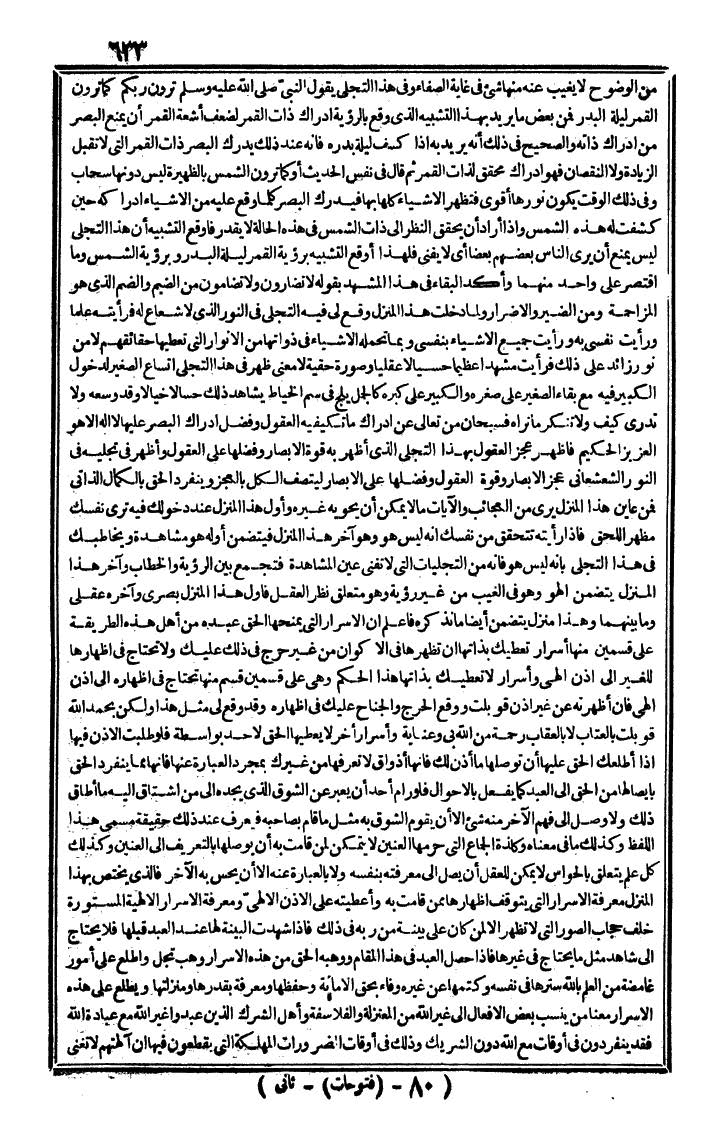 ٦٣٣
من الوضوح لا يغيب عنه منها شئ فى غاية الصفاء وفى هذا التجلى يقول النبي صلى الله عليه وسلم ترون ربكم كما ترون
القمر ليلة البدر فمن بعض ما يريد بهذا التشبيه الذى وقع بالرؤية ادراك ذات القمر لضعف أشعة القمر أن يمنع البصر
من ادراك ذاته والصحيح فى ذلك أنه يريد به اذا كسف ليلة بدره فانه عند ذلك يدرك البصر ذات القمر التى لا تقبل
الزيادة ولا النقصان فهو ادراك محقق لذات القمر ثم قال فى نفس الحديث أو كما ترون الشمس بالظهيرة ليس دونها سحاب
وفى ذلك الوقت يكون نورها أقوى فتظهر الاشياء كلها بها فيدرك البصر كل ما وقع عليه من الاشياء ادراكه حين
كشفت له هذه الشمس واذا أراد أن يحقق النظر الى ذات الشمس فى هذه الحالة لا يقدر فاوقع التشبيه أن هذا التجلى
ليس يمنع أن يرى الناس بعضهم بعضا أى لا يفنى فلهذا أوقع التشبيه برؤية القمر ليلة البدر وبرؤية الشمس وما
اقتصر على واحد منهما وأكد البقاء فى هذا المشهد بقوله لا تضارون ولا تضامون من الضيم والضم الذى هو
المزاحمة ومن الضير والاضرار ولما دخلت هذا المنزل وقع لى فيه التجلى فى النور الذى لا شعاع له فرأيته علما
ورأيت نفسى به ورأيت جميع الاشياء بنفسى وبما تحمله الاشياء فى ذواتها من الانوار التى تعطيها حقائقهم لا من
نور زائد على ذلك فرأيت مشهدا عظيما حسيا لا عقليا وصورة حقية لا معنى ظهر فى هذا التجلى اتساع الصغير لدخول
الكبير فيه مع بقاء الصغير على صغره والكبير على كبره كالجمل يلج فى سم الخياط يشاهد ذلك حسا لا خيالا وقد وسعه ولا
تدرى كيف ولا تنكر ما تراه فسبحان من تعالى عن ادراك ما تكيفه العقول وفضل ادراك البصر عليها لا اله الا هو
العزيز الحكيم فاظهر عجز العقول بهذا التجلى الذى أظهر به قوة الابصار وفضلها على العقول وأظهر فى تجليه فى
النور الشعشعانى عجز الابصار وقوة العقول وفضلها على الابصار ليتصف الكل بالعجز وينفرد الحق بالكمال الذاتى
فمن عاين هذا المنزل يرى من العجائب والآيات ما لا يمكن أن يحويه غيره وأول هذا المنزل عند دخولك فيه ترى نفسك
مظهرا للحق فاذا رأيته تتحقق من نفسك انه ليس هو وهو آخر هذا المنزل فيتضمن أوله هو مشاهدة ويخاطبك
فى هذا التجلى بانه ليس هو فانه من التجليات التى لا تفنى عين المشاهدة فتجمع بين الرؤية والخطاب وآخر هذا
المنزل يتضمن الهو وهو فى الغيب من غير رؤية وهو متعلق نظر العقل فاول هذا المنزل بصرى وآخره عقلى
وما بينهما وهذا منزل يتضمن أيضا ما نذكره فاعلم ان الاسرار التى يمنحها الحق عبده من أهل هذه الطريقة
على قسمين منها أسرار تعطيك بذاتها ان تظهرها فى الاكوان من غير حرج فى ذلك عليك ولا تحتاج فى اظهارها
للغير الى اذن الهى وأسرار لا تعطيك بذاتها هذا الحكم وهى على قسمين قسم منها تحتاج فى اظهاره الى اذن
الهى فان أظهرته عن غير اذن قوبلت ووقع الحرج والجناح عليك فى اظهاره وقد وقع لى مثل هذا ولكن بحمد الله
قوبلت بالعتاب لا بالعقاب رحمة من الله بى وعناية وأسرار أخر لا يعطيها الحق لاحد بواسطة فلو طلبت الاذن فيها
اذا أطلعك الحق عليها أن توصلها ما أذن لك فانها أذواق لا تعرفها من غيرك بمجرد العبارة عنها فانها مما ينفرد الحق
بايصالها من الحق الى العبد كما يفعل بالاحوال فلو رام أحد أن يعبر عن الشوق الذى يجده الى من اشتاق اليه ما أطاق
ذلك ولا وصل الى فهم الآخر منه شئ الا أن يقوم الشوق به مثل ما قام بصاحبه فيعرف عند ذلك حقيقة مسمى هذا
اللفظ وكذلك ما فى معناه وكلذة الجماع التى حرمها العنين لا يتمكن لمن قامت به أن يوصلها بالتعريف الى العنين وكذلك
كل علم يتعلق بالحواس لا يمكن للعقل أن يصل الى معرفته بنفسه ولا بالعبارة عنه الا أن يحس به الآخر فالذى يختص بهذا
المنزل معرفة الاسرار التى يتوقف اظهارها ممن قامت به وأعطيته على الاذن الالهى ومعرفة الاسرار الالهية المستورة
خلف حجاب الصور التى لا تظهر الا لمن كان على بينة من ربه فى ذلك فاذا شهدت البينة لها عند العبد قبلها فلا يحتاج
الى شاهد مثل ما يحتاج فى غيرها فاذا حصل العبد فى هذا المقام ووهبه الحق من هذه الاسرار وهب تجل واطلع على أمور
غامضة من العلم بالله سترها فى نفسه وكتمها عن غيره وفاء بحق الامانة وحفظها ومعرفة بقدرها ومنزلتها ويطلع على هذه
الاسرار معنا من ينسب بعض الافعال الى غير الله من المعتزلة والفلاسفة وأهل الشرك الذين عبدوا غير الله مع عبادة الله
فقد ينفردون فى أوقات مع الله دون الشريك وذلك فى أوقات الضرورات المهلكة التى يقطعون فيها ان آلهتهم لا تغنى
( ٨٠ - (فتوحات) - ثانى )